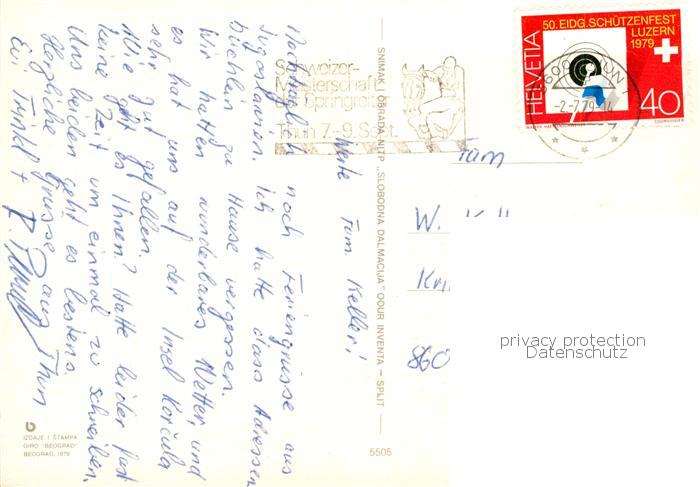 Werte Fam. Keller!
Nachträglich noch Feriengrüsse aus
Jugoslawien. Ich hatte dass Adressen
büchlein zu Hause vergessen.
Wir hatten wunderbares Wetter, und
es hat uns auf der Insel Korčula
sehr gut gefallen.
Wie geht es Ihnen? Hatte leider fast
keine Zeit um einmal zu schreiben.
Uns beiden geht es bestens.
Herzliche Grüsse aus Thun
Evi Trinkl +
SNIMAK I OBRADA NITP „SLOBODNA DALMACIJA" OOUR INVENTA — SPLIT
IZDAJE I ŠTAMPA
GIRO "BEOGRAD"
BEOGRAD, 1979
5505
Schweizer-
Meisterschaft
Springreiten
Thun 7.-9. Sept.
50. EIDG. SCHÜTZENFEST
LUZERN
1979
HELVETIA
40
COURVOISIER
3600 THUN 1
-2.-7.79-
Fam
W. Kell
860
privacy protection
Datenschutz